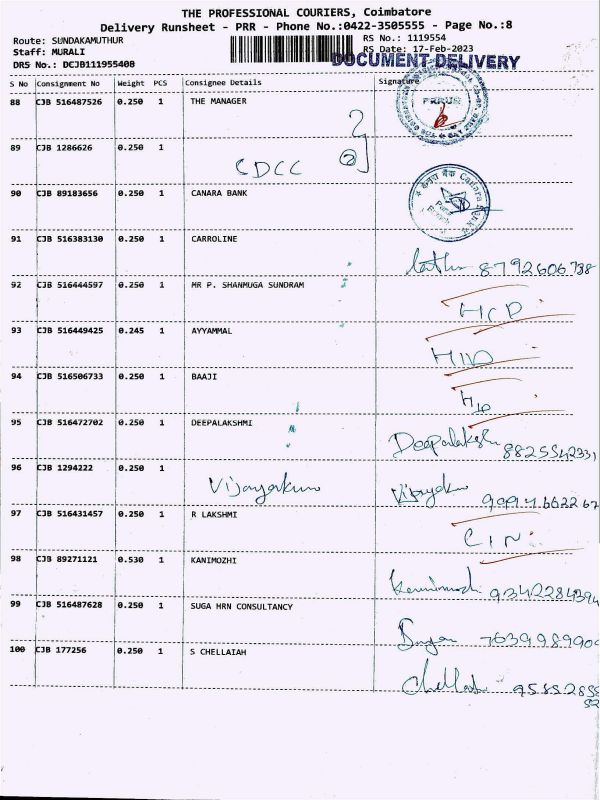 THE PROFESSIONAL COURIERS, Coimbatore
Delivery Runsheet - PRR - Phone No.:0422-3505555 - Page No.:8
Route: SUNDAKAMUTHUR
RS No.: 1119554
Staff: MURALI
RS Date: 17-Feb-2023
DRS No.: DCJB111955408
DOCUMENT DELIVERY
S No Consignment No Weight PCS Consignee Details Signature
88 CJB 516487526 0.250 1 THE MANAGER
89 CJB 1286626 0.250 1
CDCC
90 CJB 89183656 0.250 1 CANARA BANK
केनरा बैंक Canara Bank
91 CJB 516383130 0.250 1 CARROLINE
8792606788
92 CJB 516444597 0.250 1 MR P. SHANMUGA SUNDRAM
93 CJB 516449425 0.245 1 AYYAMMAL
94 CJB 516506733 0.250 1 BAAJI
95 CJB 516472702 0.250 1 DEEPALAKSHMI
Deepalakshi 8825542331
96 CJB 1294222 0.250 1
Vijayakum
97 CJB 516431457 0.250 1 R LAKSHMI
98 CJB 89271121 0.530 1 KANIMOZHI
9342284394
99 CJB 516487628 0.250 1 SUGA HRN CONSULTANCY
100 CJB 177256 0.250 1 S CHELLAIAH